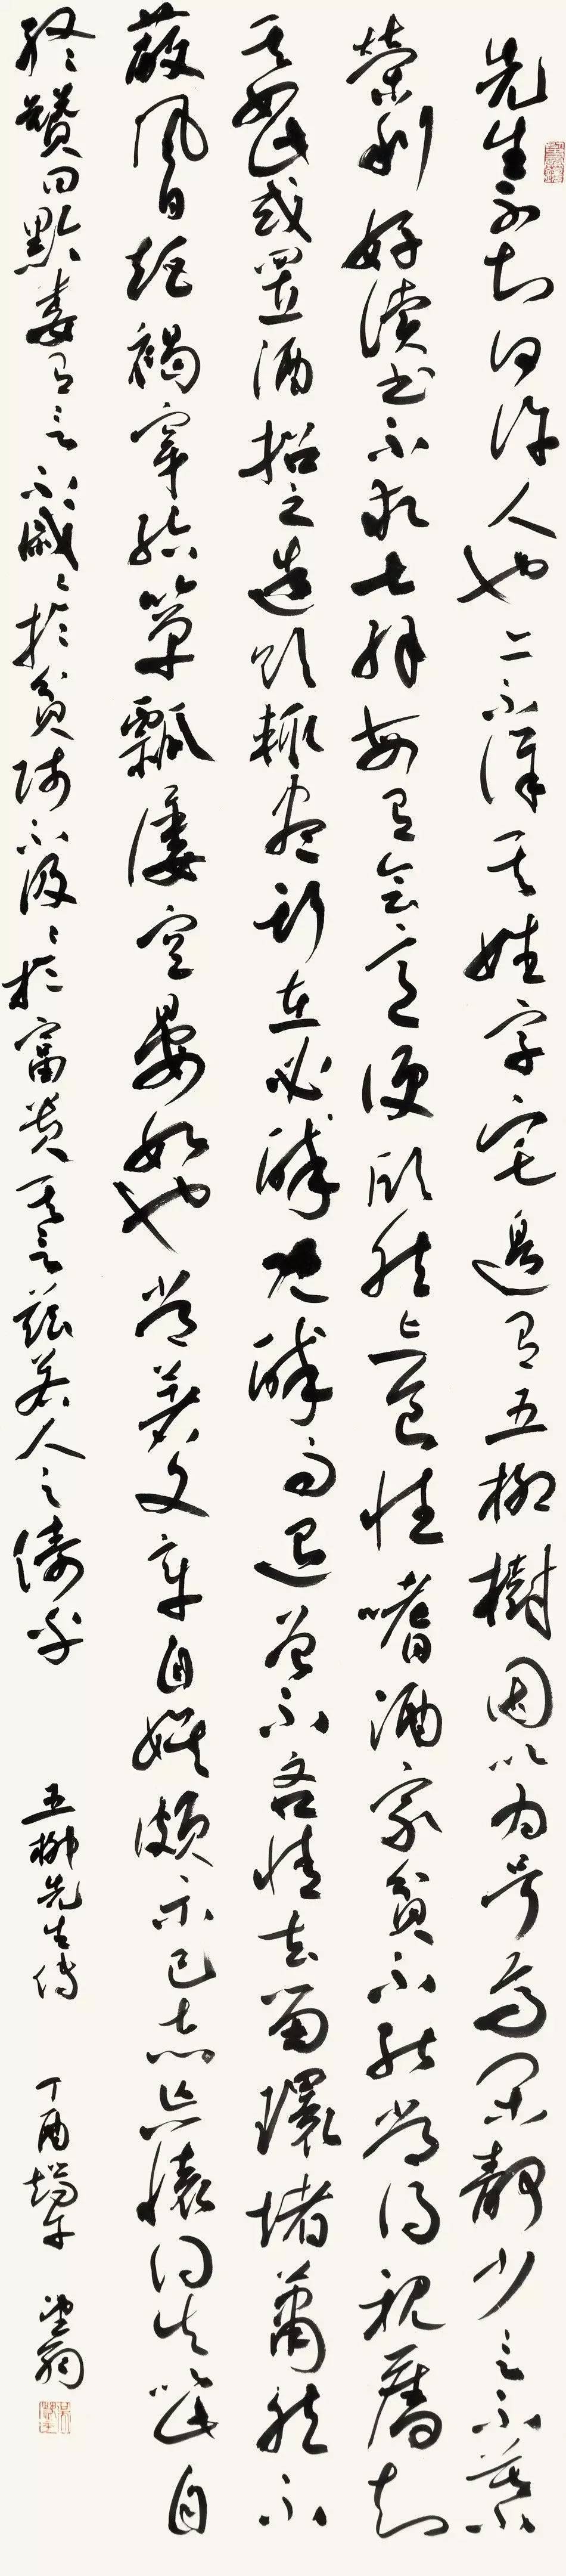 先生不知何许人也亦不詳其姓字宅邊有五柳樹因以为号焉闲静少言不慕
榮利好讀书不求甚解每有会意便欣然忘食性嗜酒家貧不能常得親舊知
其如此或置酒招之造飲輒盡期在必醉既醉而退曾不吝情去留環堵蕭然不
蔽風日短褐穿結簞瓢屢空晏如也常著文章自娱頗示己志忘懷得失以此自
終贊曰黔婁有言不戚〻於貧賤不汲〻於富貴其言兹若人之儔乎 五柳先生传 丁酉端午